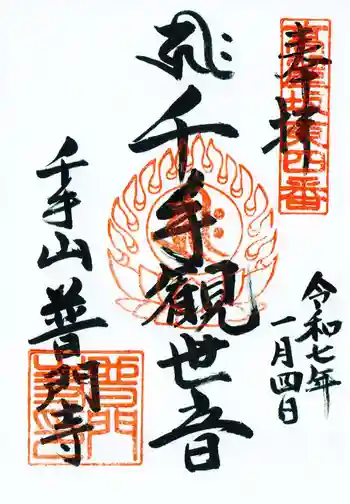 奉拝
千手観世音
千手山
普門寺
令和七年
一月四日